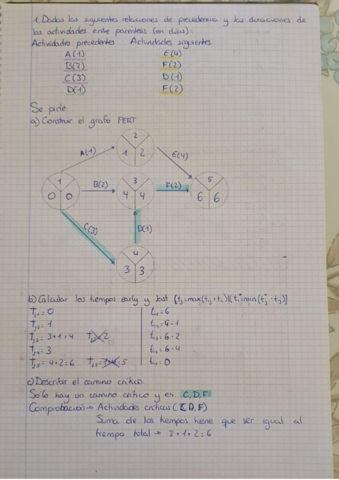 1. Dadas las siguientes relaciones de precedencia y las duraciones de
las actividades entre paréntesis (en días):
Actividades precedentes Actividades siguientes
A(1) E(4)
B(2) F(2)
C(3) D(1)
D(1) F(2)
Se pide:
a) Construir el grafo PERT
2
A(1) 1 2 E(4)
1 3 5
0 0 B(2) 4 4 F(2) 6 6
C(3) D(1)
4
3 3
b) Calcular los tiempos early y last
= 0 = 6
= 1 = 6-1
= 3+1 = 4 = 6-2
= 3 = 6-4
= 4+2 = 6 = 5 = 0
c) Describir el camino crítico
Solo hay un camino crítico y es C, D, F
Comprobación → Actividades críticas (C, D, F)
Suma de los tiempos tiene que ser igual al
tiempo total → 3+1+2=6